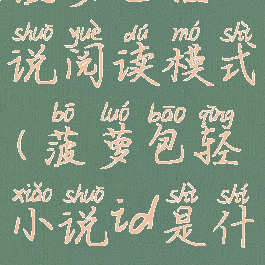 shuō yuè dú mó shì
说阅读模式
bō luó bāo qīng
(菠萝包轻
xiǎo shuō shì shí
小说id是什